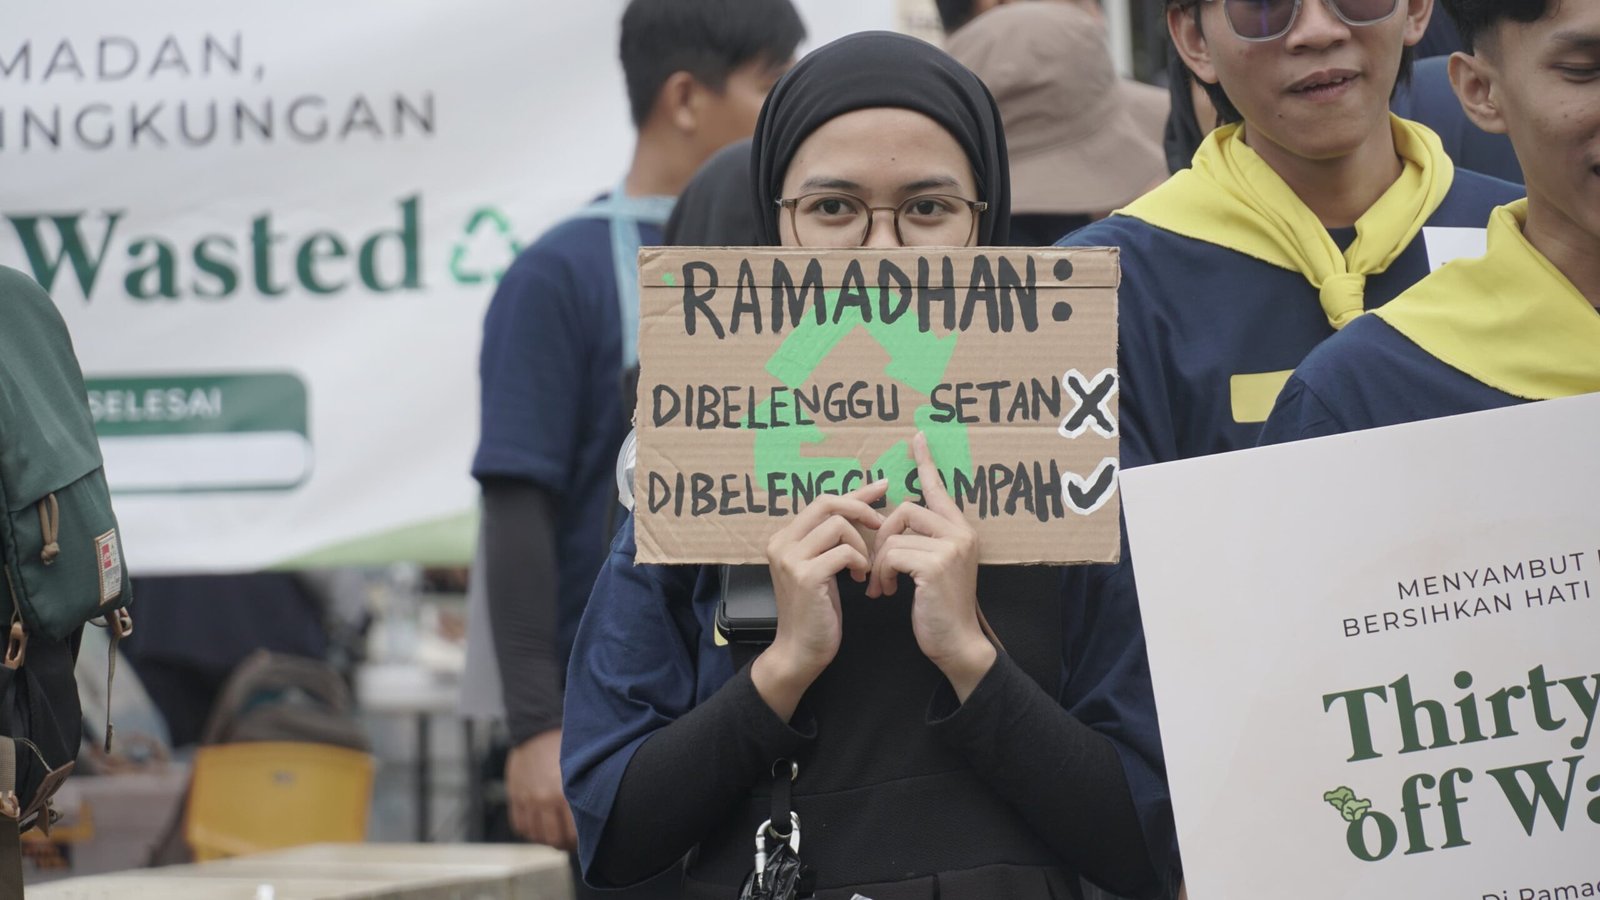 MADAN,
INGKUNGAN
Wasted
SELESAI
RAMADHAN:
DIBELENGGU SETAN
DIBELENGGU SAMPAH
MENYAMBUT
BERSIHKAN HATI
Thirty
off Wa
Di Ramad